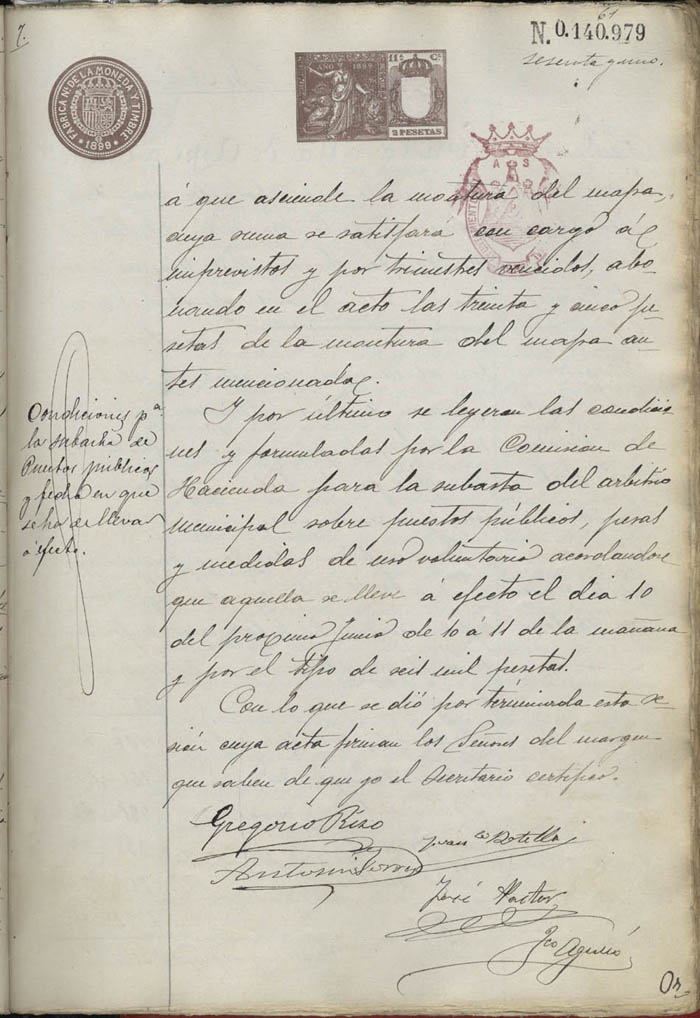 7.
61
N. 0.140.979
sesenta y uno.
FABRICA NL DE LA MONEDA Y TIMBRE
1899
AÑO 1899
11ª Cª
2 PESETAS
A S
á que asciende la montura del mapa,
cuya suma se satisfará con cargo á
imprevistos y por trimestres vencidos, abo-
nando en el acto las treinta y cinco pe-
setas de la montura del mapa an-
tes mencionado.
Condiciones pª
la subasta de
Puestos públicos
y fecha en que
se ha de llevar
á efecto.
Y por último se leyeron las condicio-
nes y formuladas por la Comision de
Hacienda para la subasta del arbitrio
municipal sobre puestos públicos, pesas
y medidas de uso voluntario acordandose
que aquella se lleve á efecto el dia 10
del proximo Junio de 10 á 11 de la mañana
y por el tipo de seis mil pesetas.
Con lo que se dió por terminada esta se-
sión cuya acta firman los Señores del margen
que saben de que yo el Secretario certifico.
Gregorio Rizo
Botella
Antonio
José Pastor
Fco